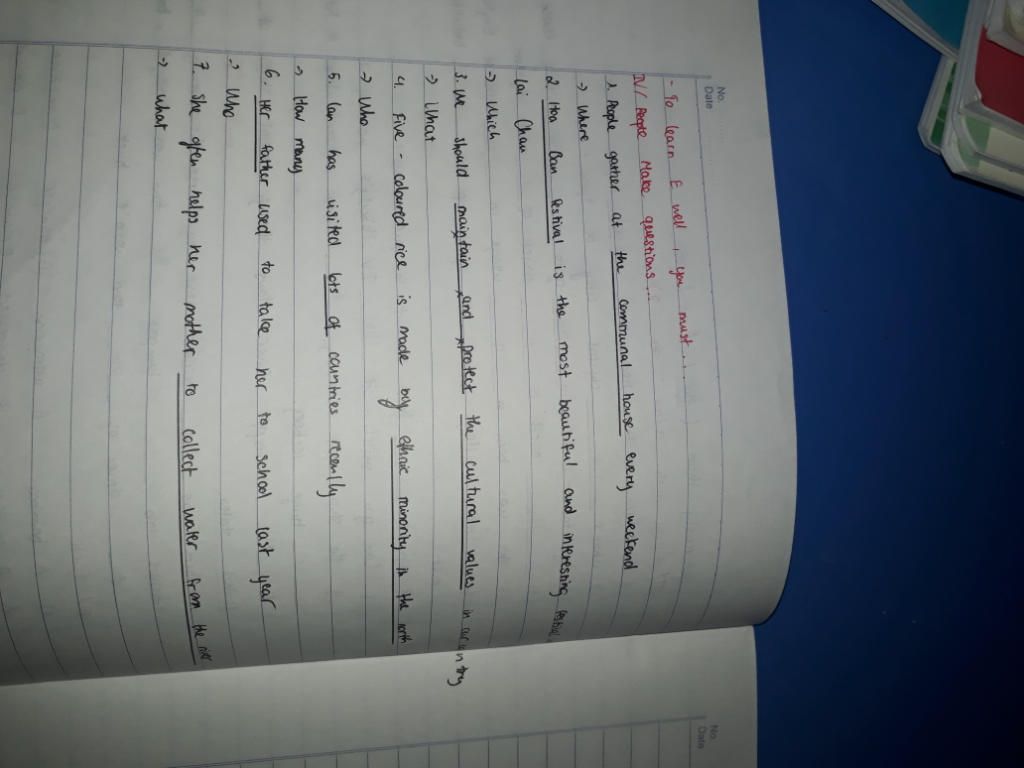 No.
Date
- To learn E well, you must...
IV/ People Make questions...
1. People gather at the communal house every weekend
→ Where
2. Hoa Ban festival is the most beautiful and interesting festival
Lai Chau
→ Which
3. We should maintain and protect the cultural values in
→ What
4. Five - coloured rice is made by ethnic minority in the north
→ Who
5. Lan has visited lots of countries recently
→ How many
6. Her father used to take her to school last year
→ Who
7. She often helps her mother to collect water from the river
→ What
No.
Date